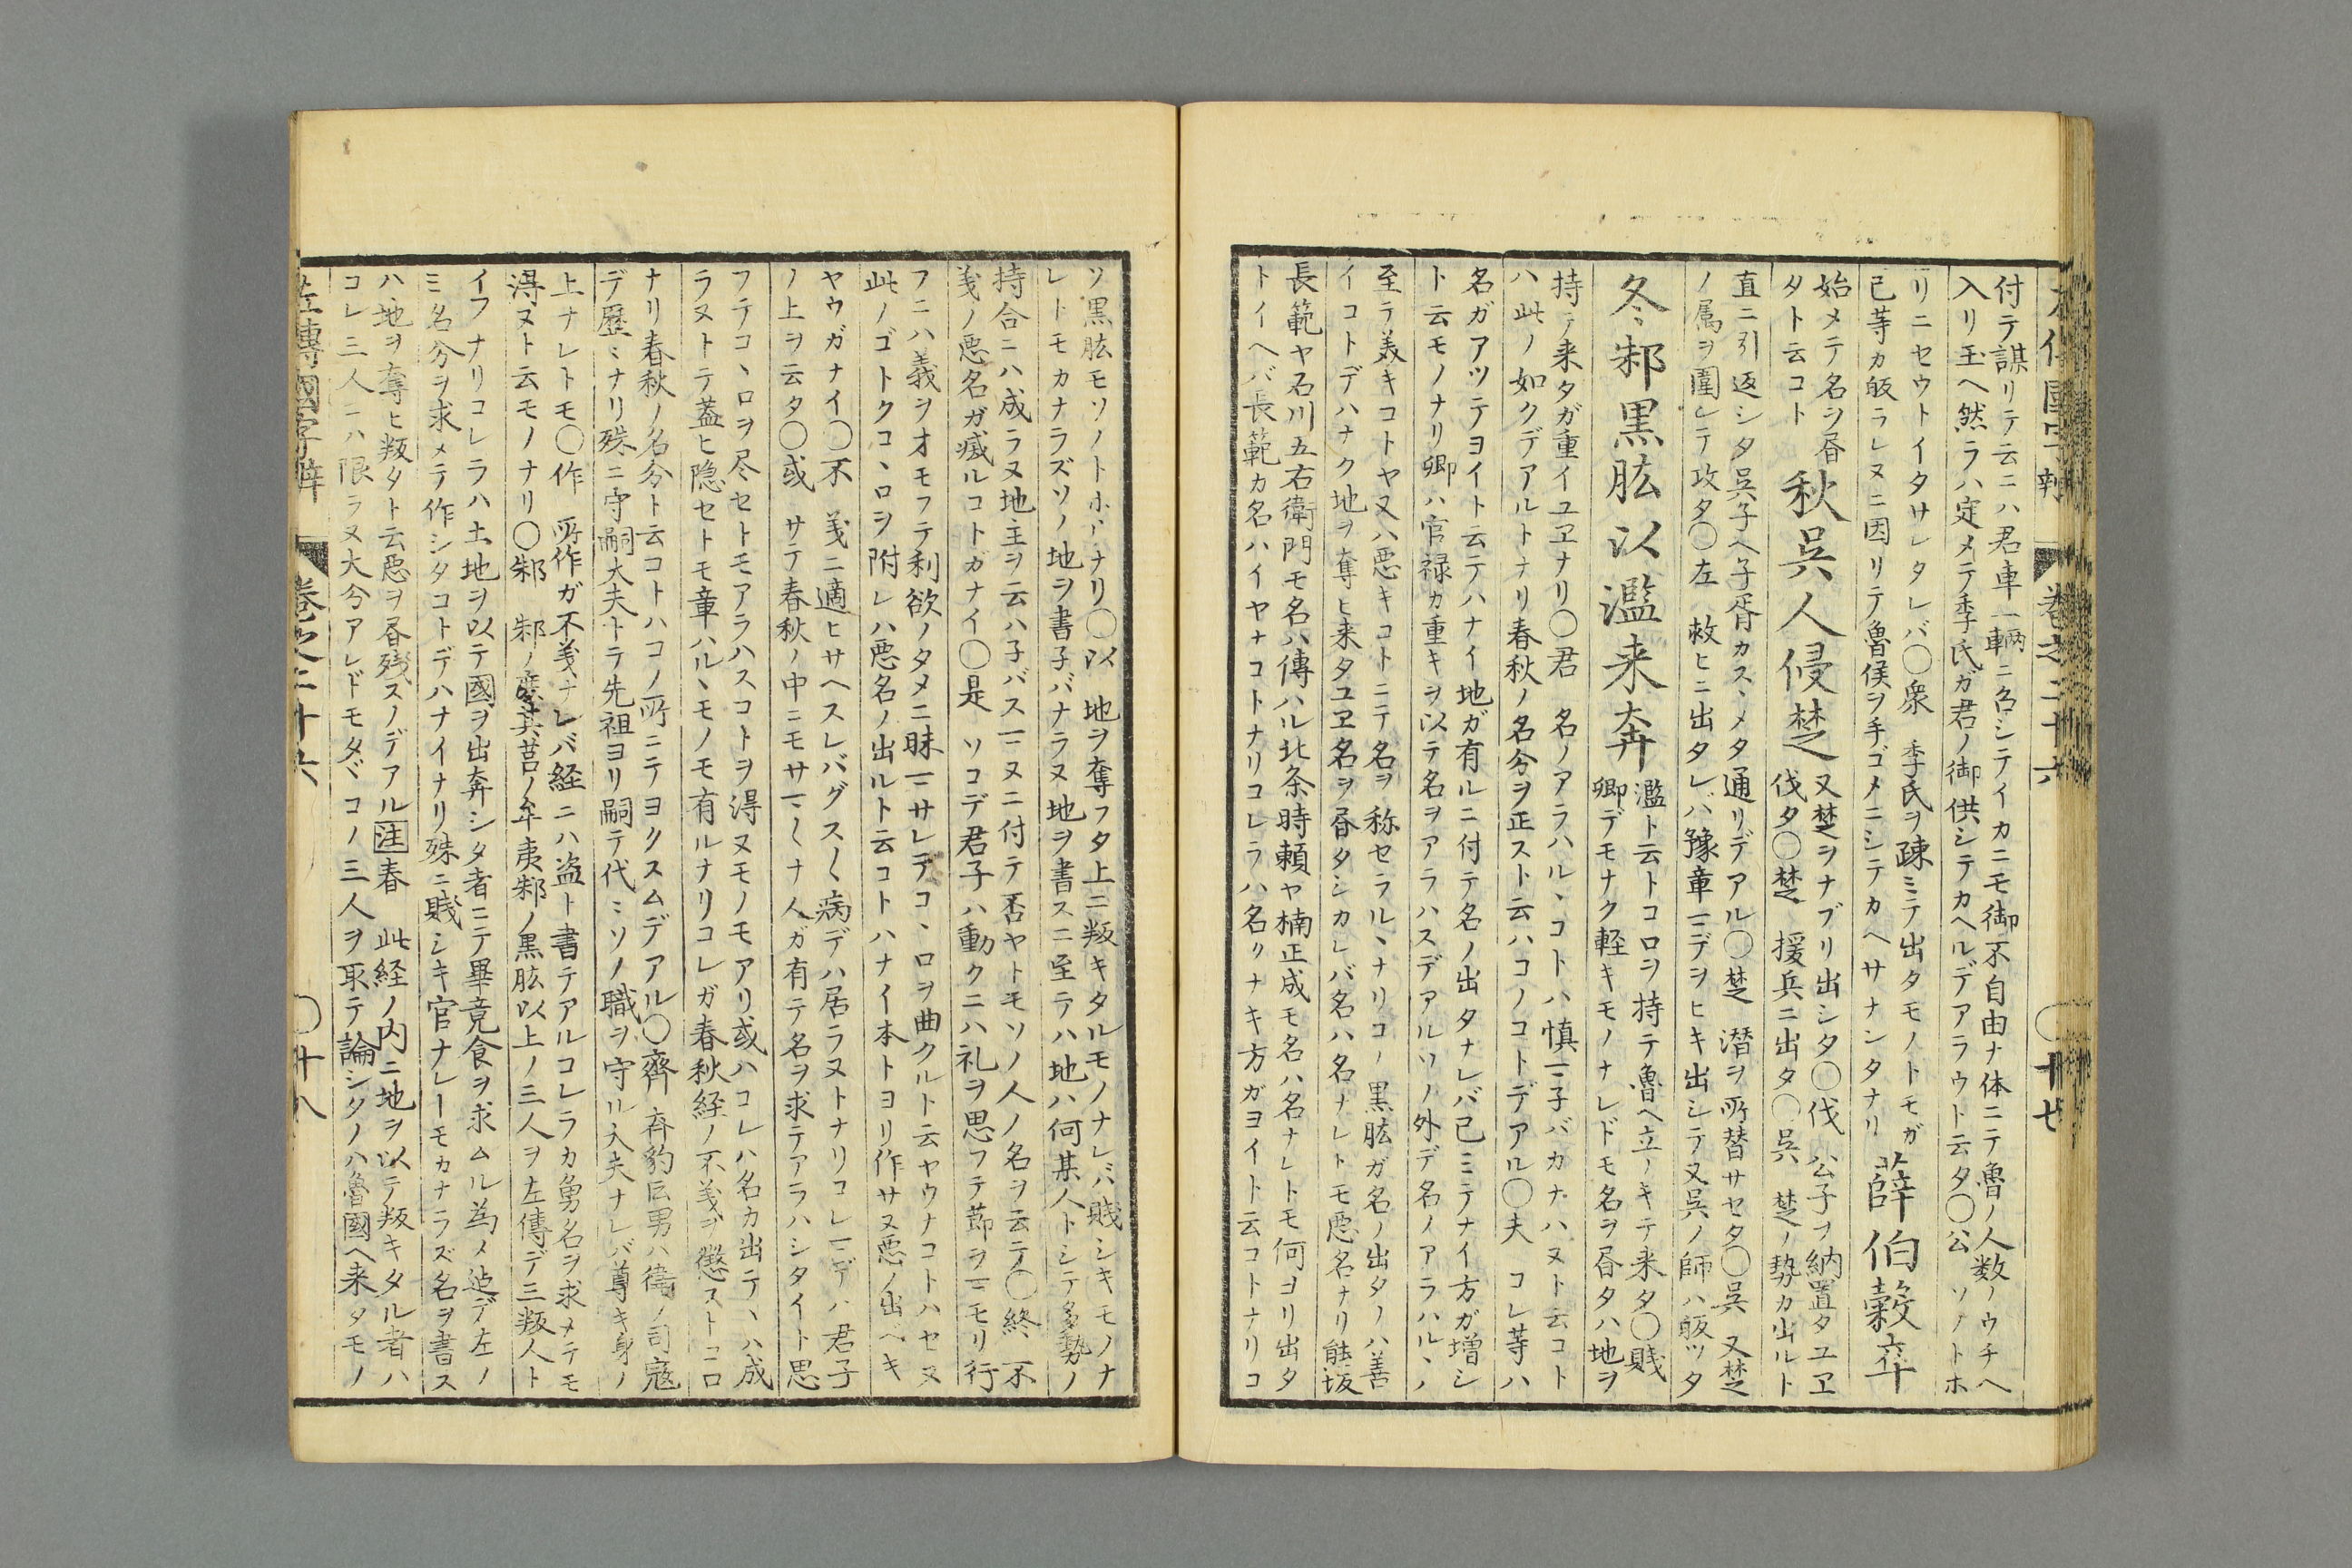 付テ謀リテ云ニハ君車一輛ニ名シテイカニモ御不自由ナ体ニテ魯ノ人数ノウチヘ
入リ玉ヘ然ラハ定メテ季氏ガ君ノ御供シテカヘルデアラウト云タ〇公 ソノトホ
リニセウトイタサレタレバ〇衆 季氏ヲ疎ミテ出タモノトモガ
已䓁カ皈ラレヌニ因リテ魯侯ヲ手ゴメニシテカヘサナンタナリ
薛伯穀卒
始メテ名ヲ昏
タト云コト
秋呉人侵楚
又楚ヲナブリ出シタ〇伐 公子ヲ納置タユヱ
伐タ〇楚 援兵ニ出タ〇呉 楚ノ勢カ出ルト
直ニ引返シタ呉子ヘ子胥カスヽメタ通リデアル〇楚 潜ヲ所替サセタ〇呉 又楚
ノ属ヲ圍レテ攻タ〇左 救ヒニ出タレバ豫章ニデヲヒキ出シテ又呉ノ師ハ皈ツタ
冬邾黒肱以濫来奔
濫ト云トコロヲ持テ魯ヘ立ノキテ来タ〇賤
卿デモナク軽キモノナレドモ名ヲ昏タハ地ヲ
持テ来タガ重イユヱナリ〇君 名ノアラハルヽコトハ慎ニ子バカナハヌト云コト
ハ此ノ如クデアルトナリ春秋ノ名分ヲ正スト云ハコノコトデアル〇夫 コレ䓁ハ
名ガアツテヨイト云テハナイ地ガ有ルニ付テ名ノ出タナレバ已ミテナイ方ガ増シ
ト云モノナリ卿ハ官禄カ重キヲ以テ名ヲアラハスデアルソノ外デ名ノアラハルヽノ
至ラ美キコトヤ又ハ悪キコトニテ名ヲ称セラルヽナリコノ黒肱ガ名ノ出タノハ善
イコトデハナク地ヲ奪ヒ来タユヱ名ヲ昏タシカレバ名ハ名ナレトモ悪名ナリ熊坂
長範ヤ石川五右衛門モ名ハ傳ハル北条時頼ヤ楠正成モ名ハ名ナレトモ何ヨリ出タ
トイヘバ長範カ名ハイヤナコトナリコレラハ名ノナキ方ガヨイト云コトナリコ
ソ黒肱モソノトホリナリ〇以 地ヲ奪フタ上ニ叛キタルモノナレバ賤シキモノナ
レトモカナラズソノ地ヲ書子バナラヌ地ヲ書スニ至テハ地ハ何某人トシテ多勢ノ
持合ニハ成ラヌ地主ヲ云ハ子バスニヌニ付テ否ヤトモソノ人ノ名ヲ云テ〇終 不
義ノ悪名ガ滅ルコトガナイ〇是 ソコデ君子ハ動クニハ礼ヲ思フテ節ヲニモリ行
フニハ義ヲオモフテ利欲ノタメニ昧ニサレテコヽロヲ曲クルト云ヤウナコトハセヌ
此ノゴトクコヽロヲ附レハ悪名ノ出ルト云コトハナイ本トヨリ作サヌ悪ノ出ベキ
ヤウガナイ〇不 義ニ適ヒサヘスレバグス〱病デハ居ラヌトナリコレニデハ君子
ノ上ヲ云タ〇或 サテ春秋ノ中ニモサニ〱ナ人ガ有テ名ヲ求テアラハシタイト思
フテコヽロヲ尽セトモアラハスコトヲ得ヌモノモアリ或ハコレハ名カ出テヽハ成
ラヌトテ蓋ヒ隠セトモ章ハルヽモノモ有ルナリコレガ春秋経ノ不義ヲ懲ストコロ
ナリ春秋ノ名分ト云コトハコノ所ニテヨクスムデアル〇齊 斉豹巨男ハ衛ノ司寇
デ歴〻ナリ殊ニ守嗣大夫トテ先祖ヨリ嗣テ代〻ソノ職ヲ守ル大夫ナレバ尊キ身ノ
上ナレトモ〇作 所作ガ不義ナレバ経ニハ盗ト書テアルコレラカ勇名ヲ求メテモ
得ヌト云モノナリ〇邾 邾ノ庶其莒ノ牟夷邾ノ黒肱以上ノ三人ヲ左傳デ三叛人ト
イフナリコレラハ土地ヲ以テ國ヲ出奔シタ者ニテ畢竟食ヲ求ムル為メ迠デ左ノ
ミ名分ヲ求メテ作シタコトデハナイナリ殊ニ賎シキ官ナレトモカナラズ名ヲ書ス
ハ地ヲ奪ヒ叛タト云悪ヲ昏残スノデアル注春 此経ノ内ニ地ヲ以テ叛キタル者ハ
コレ三人ニハ限ラヌ大分アレドモタヾコノ三人ヲ取テ論シタノハ魯國ヘ来タモノ
左傳國字辯 巻之二十六 〇十八